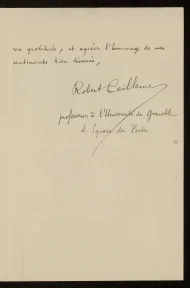 ma gratitude, et agréer l'hommage de mes
sentiments bien dévoués,
Robert Caillemer
professeur à l'Université de Grenoble
4, Square des Postes.